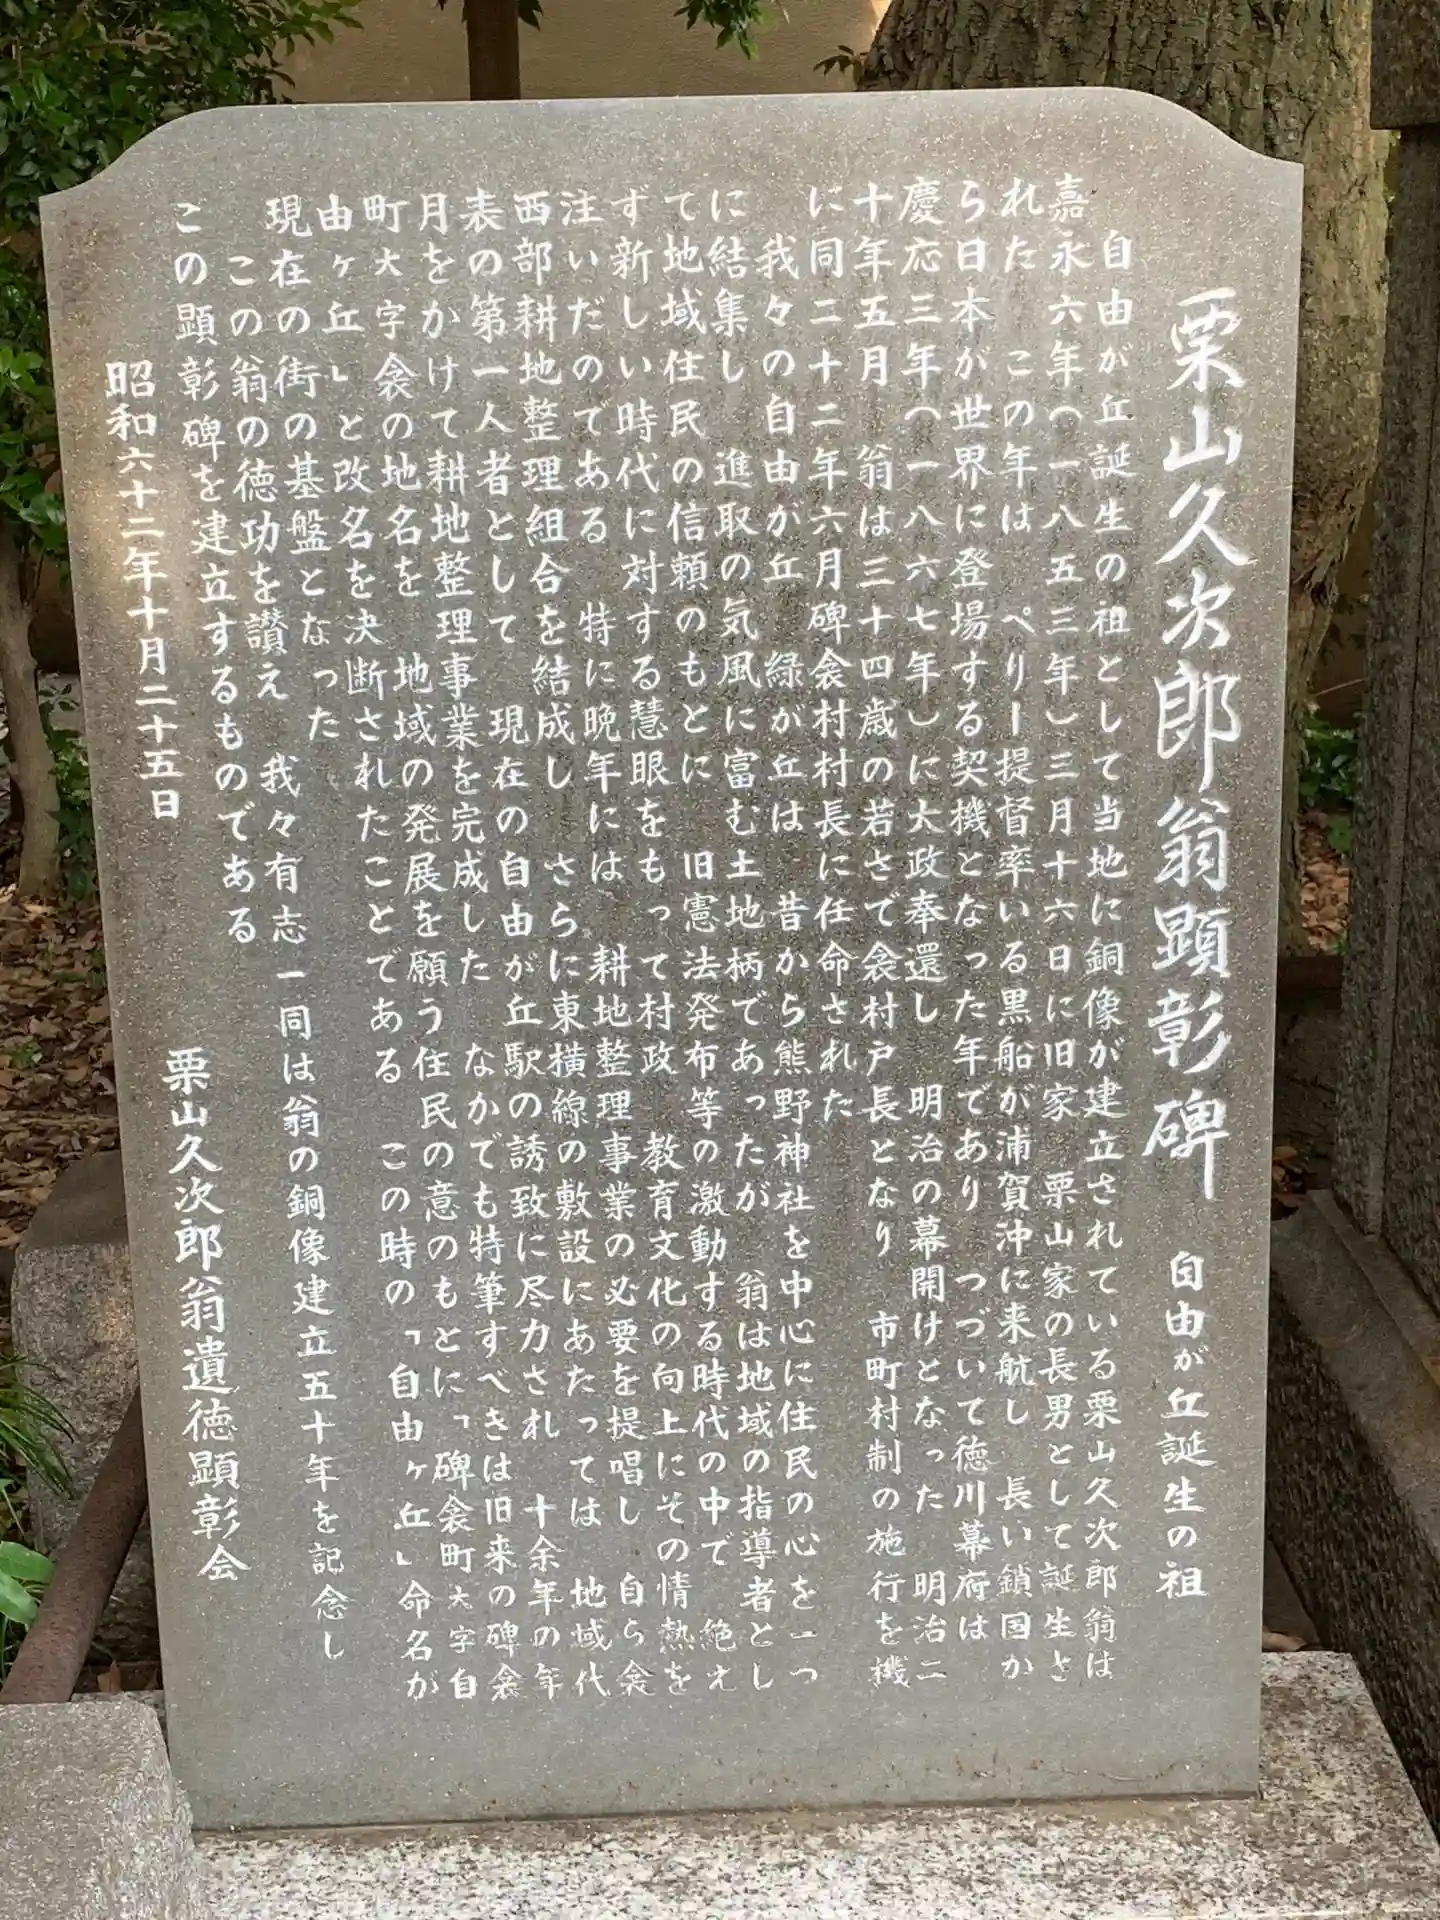 栗山久次郎翁顕彰碑 自由が丘誕生の祖
自由が丘誕生の祖として当地に銅像が建立されている栗山久次郎翁は
嘉永六年(一八五三年)三月十六日に旧家 栗山家の長男として誕生さ
れた この年は ペリー提督率いる黒船が浦賀沖に来航し 長い鎖国か
ら日本が世界に登場する契機となった年であり つづいて徳川幕府は
慶応三年(一八六七年)に大政奉還し 明治の幕開けとなった 明治二
十年五月 翁は三十四歳の若さで衾村戸長となり 市町村制の施行を機
に同二十二年六月碑衾村村長に任命された
我々の自由が丘 緑が丘は 昔から熊野神社を中心に住民の心を一つ
に結集し 進取の気風に富む土地柄であったが 翁は地域の指導者とし
て地域住民の信頼のもとに 旧憲法発布等の激動する時代の中で 絶え
ず新しい時代に対する慧眼をもって村政 教育文化の向上にその情熱を
注いだのである 特に晩年には 耕地整理事業の必要を提唱し 自ら衾
西部耕地整理組合を結成し さらに東横線の敷設にあたっては 地域代
表の第一人者として 現在の自由が丘駅の誘致に尽力され 十余年の年
月をかけて耕地整理事業を完成した なかでも特筆すべきは旧来の碑衾
町大字衾の地名を 地域の発展を願う住民の意のもとに「碑衾町大字自
由ヶ丘」と改名を決断されたことである この時の「自由ヶ丘」命名が
現在の街の基盤となった
この翁の徳功を讃え 我々有志一同は翁の銅像建立五十年を記念し
この顕彰碑を建立するものである
昭和六十二年十月二十五日
栗山久次郎翁遺徳顕彰会